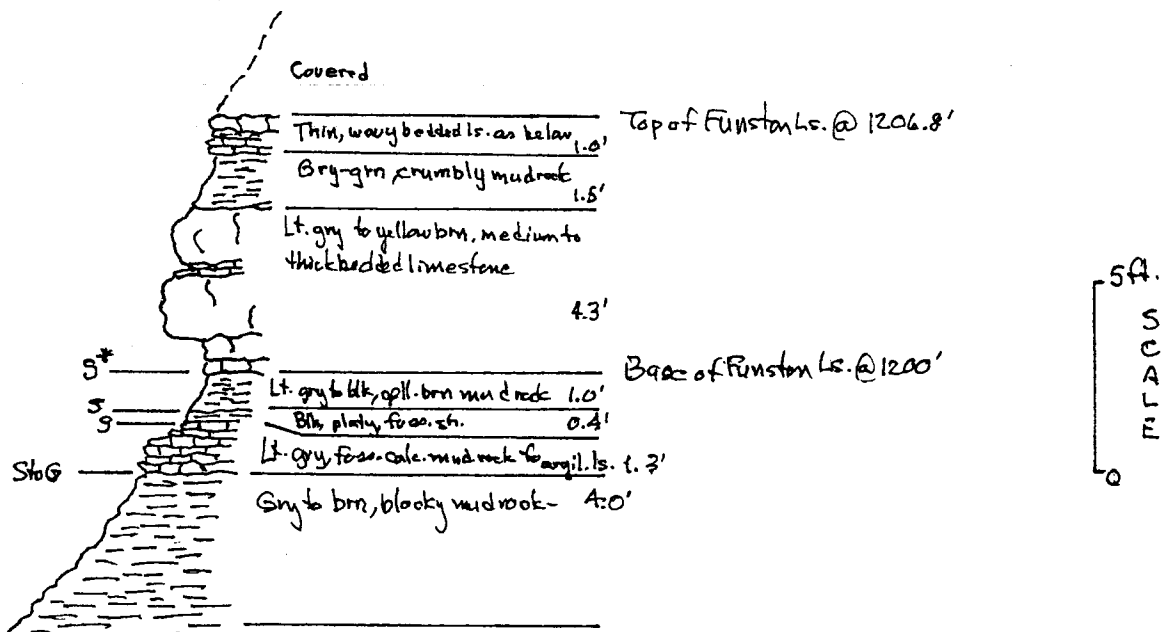 Covered
Thin, wavy bedded ls. as below 1.0'
Top of Funston Ls. @ 1206.8'
Gry-grn, crumbly mudrock
1.5'
Lt. gry to yellow brn, medium to
thick bedded limestone
4.3'
5 ft.
SCALE
0
g*
Base of Funston Ls. @ 1200'
Lt. gry to blk, mudrock 1.0'
5
g
Blk, platy, foss. sh. 0.4'
Lt. gry, foss. calc. mudrock to argil. ls. 1.3'
5to6
Gry to brn, blocky mudrock- 4.0'